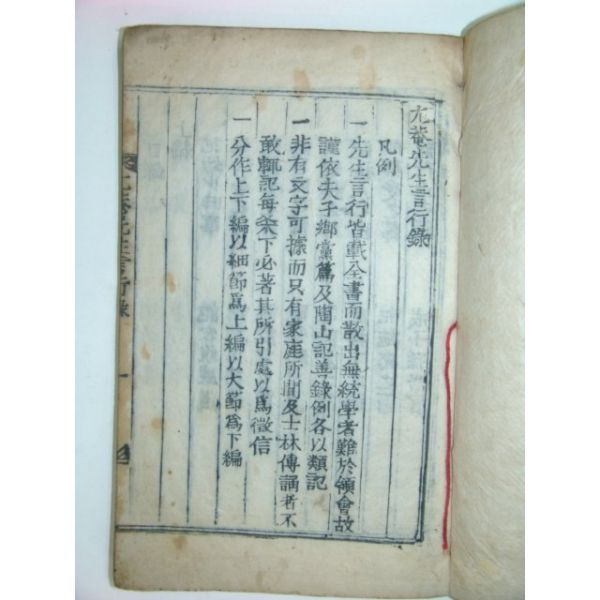 尤菴先生言行錄
凡例
一先生言行皆載全書而散出無統學者難於領會故
謹依夫子鄉黨篇及陶山記善錄例各以類記
一非有文字可據而只有家庭所聞及士林傳誦者不
敢輒記每条下必著其所引處以爲徵信
一分作上下編以細節爲上編以大節爲下編
尤菴先生言行錄
一